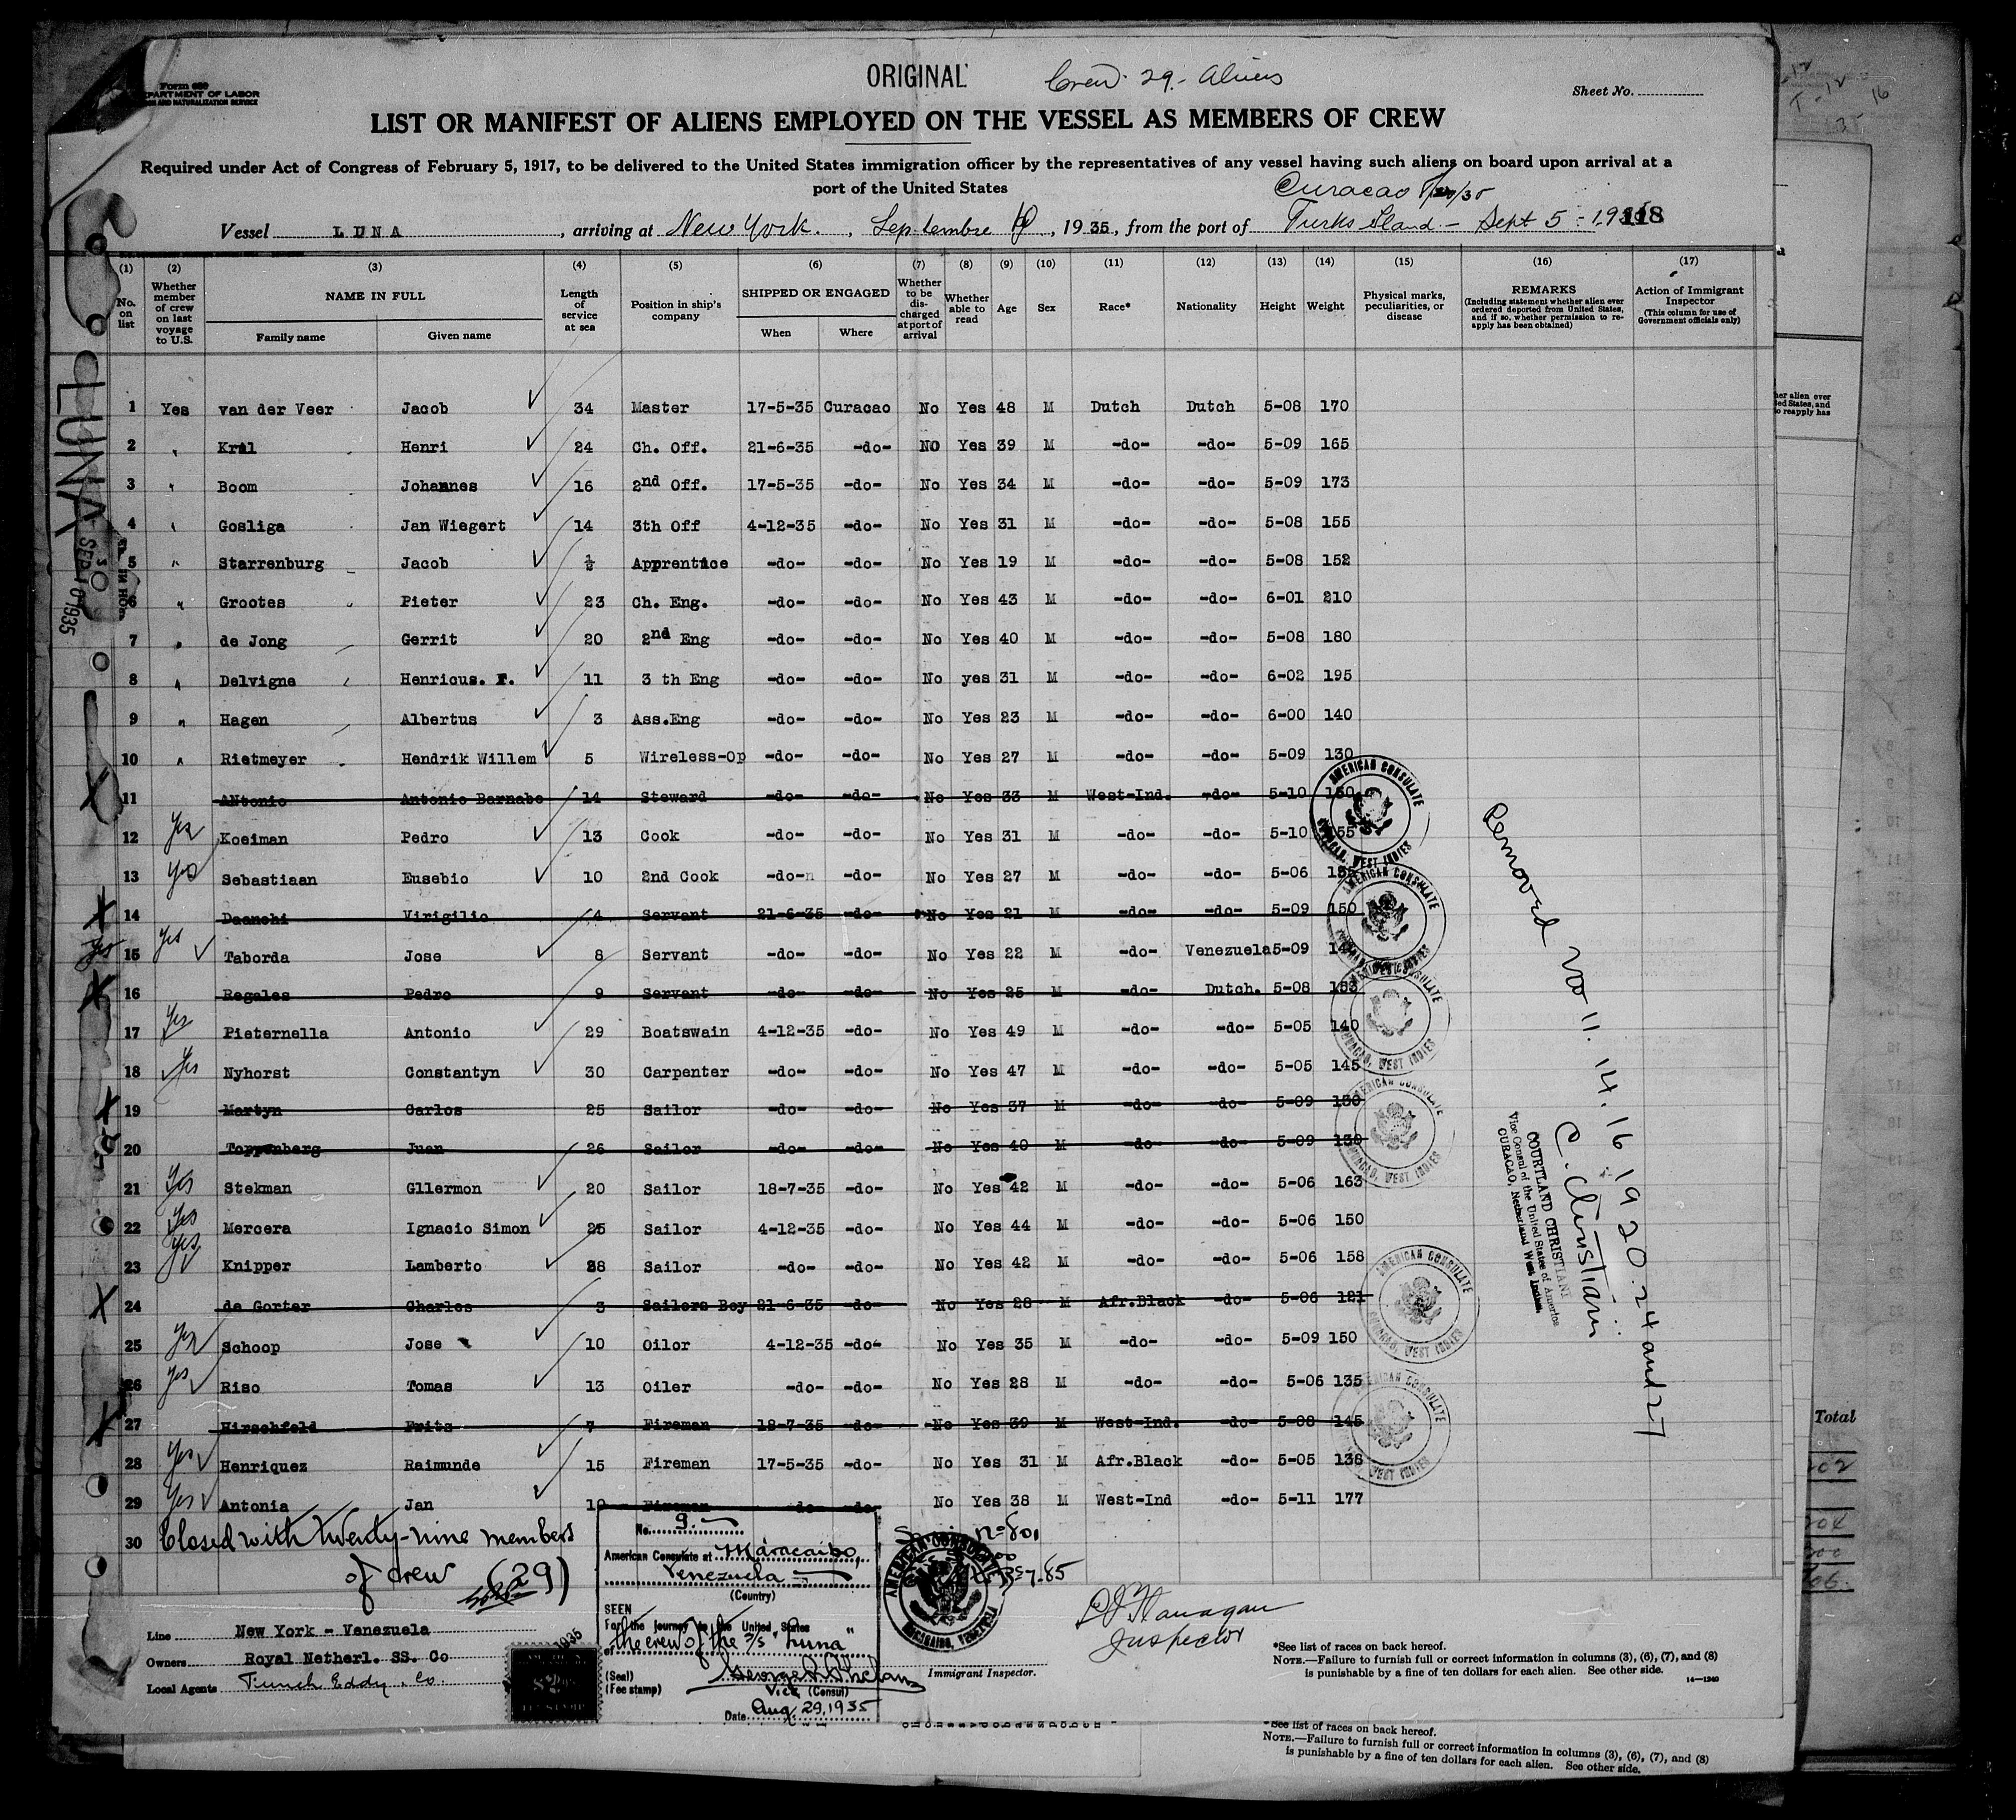 ORIGINAL
Crew 29 - Aliens
DEPARTMENT OF LABOR
Sheet No.
LIST OR MANIFEST OF ALIENS EMPLOYED ON THE VESSEL AS MEMBERS OF CREW
Required under Act of Congress of February 5, 1917, to be delivered to the United States immigration officer by the representatives of any vessel having such aliens on board upon arrival at a
port of the United States
Curacao
Vessel LUNA, arriving at New York, Septembre 19 35, from the port of Turks Island - Sept 5 -
118
(1) (2) (3) (4) (5) (6) (7) (8) (9) (10) (11) (12) (13) (14) (15) (16) (17)
No. on list
Whether member of crew on last voyage to U.S.
NAME IN FULL
Family name
Given name
Length of service at sea
Position in ship's company
SHIPPED OR ENGAGED
When
Where
Whether to be discharged at port of arrival
Whether able to read
Age
Sex
Race*
Nationality
Height
Weight
Physical marks, peculiarities, or disease
REMARKS
(Including statement whether alien ever ordered deported from United States, and if so, whether permission to reapply has been obtained)
Action of Immigrant Inspector
(This column for use of Government officials only)
1 Yes van der Veer Jacob 34 Master 17-5-35 Curacao No Yes 48 M Dutch Dutch 5-08 170
2 " Kral Henri 24 Ch. Off. 21-6-35 -do- NO Yes 39 M -do- -do- 5-09 165
3 " Boom Johannes 16 2nd Off. 17-5-35 -do- No Yes 34 M -do- -do- 5-09 173
4 " Gosliga Jan Wiegert 14 3th Off 4-12-35 -do- No Yes 31 M -do- -do- 5-08 155
5 " Starrenburg Jacob ½ Apprentice -do- -do- No Yes 19 M -do- -do- 5-08 152
6 " Grootes Pieter 23 Ch. Eng. -do- -do- No Yes 43 M -do- -do- 6-01 210
7 " de Jong Gerrit 20 2nd Eng -do- -do- No Yes 40 M -do- -do- 5-08 180
8 " Delvigne Henricus. F. 11 3 th Eng -do- -do- No yes 31 M -do- -do- 6-02 195
9 " Hagen Albertus 3 Ass.Eng -do- -do- No Yes 23 M -do- -do- 6-00 140
10 " Rietmeyer Hendrik Willem 5 Wireless-Op -do- -do- No Yes 27 M -do- -do- 5-09 130
11 ANtonio Antonio Barnabe 14 Steward -do- -do- No Yes 33 M West-Ind. -do- 5-10 150
12 Yes Koeiman Pedro 13 Cook -do- -do- No Yes 31 M -do- -do- 5-10 155
13 Yes Sebastiaan Eusebio 10 2nd Cook -do- -do- No Yes 27 M -do- -do- 5-06
14 Daanchi Virigilio 4 Servant 21-6-35 -do- No Yes 21 M -do- -do- 5-09 150
15 Yes Taborda Jose 8 Servant -do- -do- No Yes 22 M -do- Venezuela 5-09
16 Regales Pedro 9 Servant -do- -do- No Yes 25 M -do- Dutch. 5-08 153
17 Yes Pieternella Antonio 29 Boatswain 4-12-35 -do- No Yes 49 M -do- -do- 5-05 140
18 Yes Nyhorst Constantyn 30 Carpenter -do- -do- No Yes 47 M -do- -do- 5-05 145
19 Martyn Carlos 25 Sailor -do- -do- No Yes 37 M -do- -do- 5-09 130
20 Toppenberg Juan 26 Sailor -do- -do- No Yes 40 M -do- -do- 5-09 130
21 Yes Stekman Gllermon 20 Sailor 18-7-35 -do- No Yes 42 M -do- -do- 5-06 163
22 Yes Mercera Ignacio Simon 25 Sailor 4-12-35 -do- No Yes 44 M -do- -do- 5-06 150
23 Yes Knipper Lamberto 28 Sailor -do- -do- No Yes 42 M -do- -do- 5-06 158
24 de Gorter Charles 3 Sailors Boy 21-6-35 -do- No Yes 28 M Afr.Black -do- 5-06 121
25 Yes Schoop Jose 10 Oilor 4-12-35 -do- No Yes 35 M -do- -do- 5-09 150
26 Yes Riso Tomas 13 Oiler -do- -do- No Yes 28 M -do- -do- 5-06 135
27 Hirschfeld Frits 7 Fireman 18-7-35 -do- No Yes 39 M West-Ind. -do- 5-08 145
28 Yes Henriquez Raimunde 15 Fireman 17-5-35 -do- No Yes 31 M Afr.Black -do- 5-05 138
29 Yes Antonia Jan 10 Fireman -do- -do- No Yes 38 M West-Ind -do- 5-11 177
30 Closed with twenty-nine members
of crew (29)
Removed 11. 14. 16 19 20. 24 and 27
C. Christiani
COURTLAND CHRISTIANI
Vice Consul of the United States of America
CURACAO, Netherland West Indies.
AMERICAN CONSULATE
CURACAO, WEST INDIES
LUNA
SEP 10 1935
No. 9.
American Consulate at Maracaibo,
Venezuela
(Country)
SEEN
For the journey to the United States
of the crew of the S/S "Luna"
(Seal)
(Fee stamp)
George Phelan
Vice (Consul)
Date Aug. 29, 1935
AMERICAN CONSULATE
MARACAIBO, VENEZUELA
Flanagan
Inspector
Immigrant Inspector.
Line New York - Venezuela
Owners Royal Netherl. SS. Co
Local Agents Funch Eddy. Co.
*See list of races on back hereof.
NOTE.—Failure to furnish full or correct information in columns (3), (6), (7), and (8)
is punishable by a fine of ten dollars for each alien. See other side.
14—1240
*See list of races on back hereof.
NOTE.—Failure to furnish full or correct information in columns (3), (6), (7), and (8)
is punishable by a fine of ten dollars for each alien. See other side.
Total